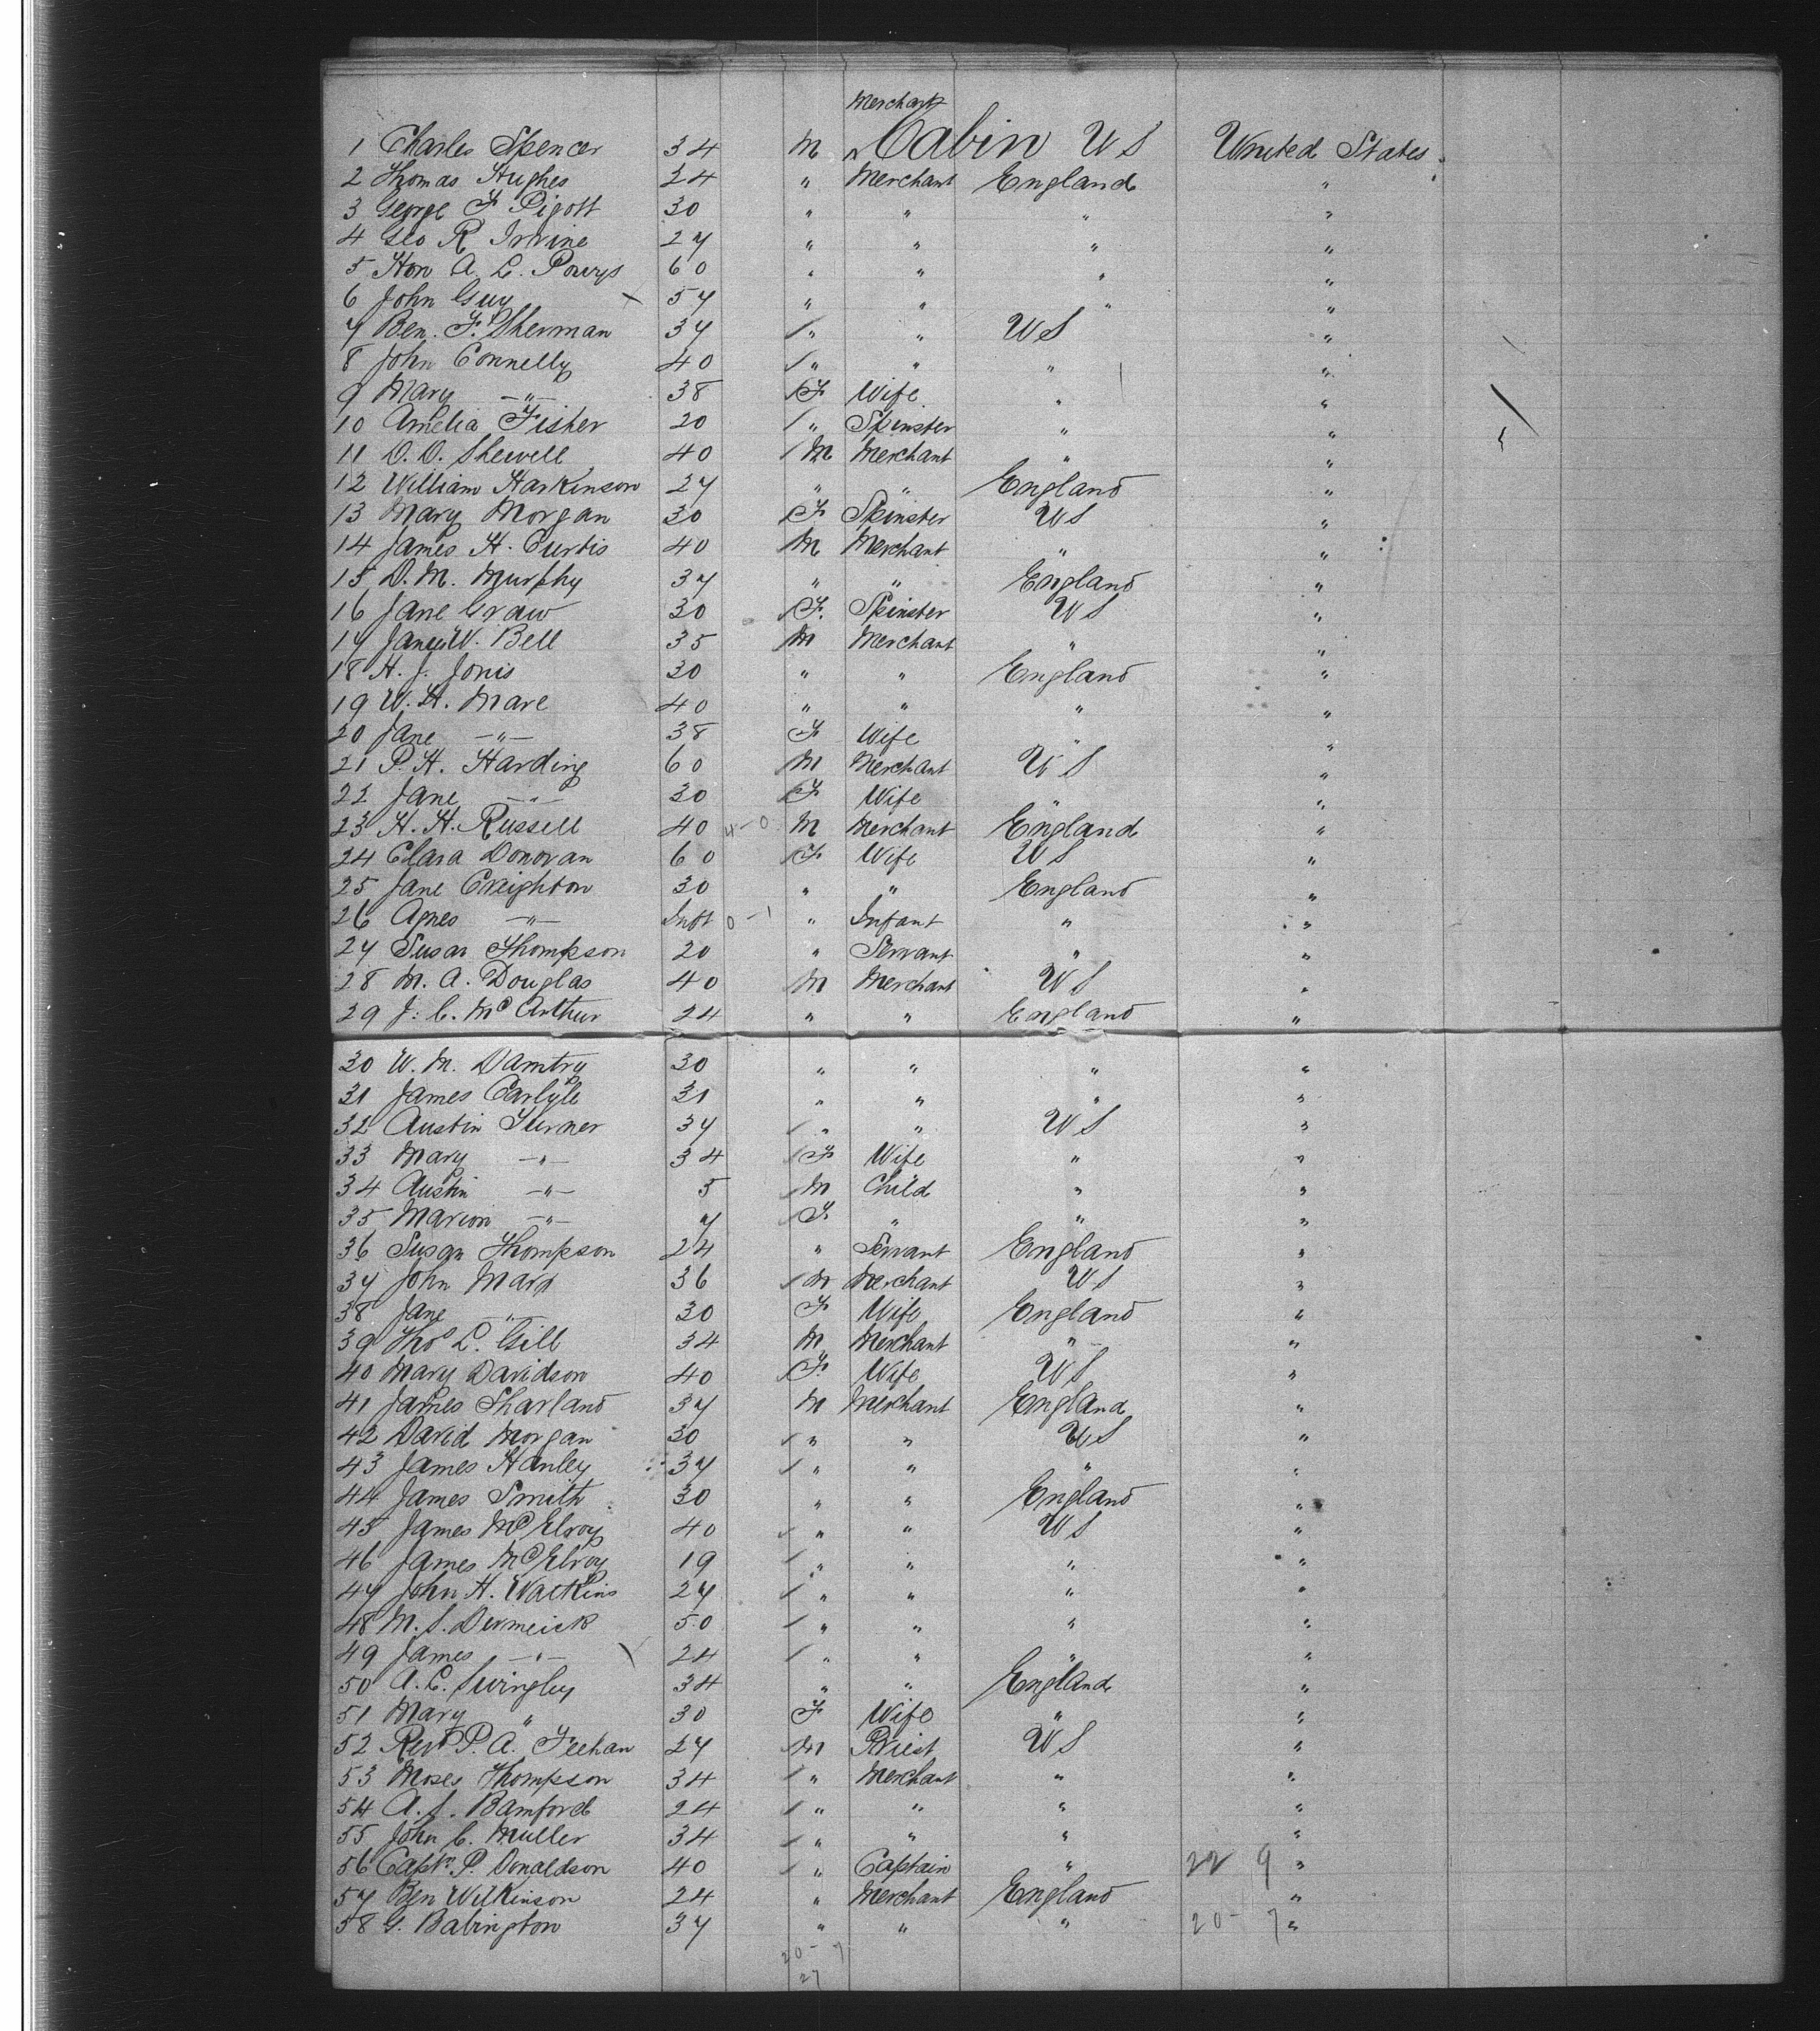 Merchant
1 Charles Spencer 34 M Cabin US United States
2 Thomas Hughes 24 " Merchant England "
3 George F Pigott 30 " " " "
4 Geo R Irvine 27 " " " "
5 Hon A. L. Powys 60 " " " "
6 John Guy 57 " " " "
7 Ben. F. Sherman 37 " " US "
8 John Connelly 40 " " " "
9 Mary —"— 38 F Wife " "
10 Amelia Fisher 20 " Spinster " "
11 O. O. Shewell 40 M Merchant " "
12 William Harkinson 27 " " England "
13 Mary Morgan 30 F Spinster US "
14 James H. Curtis 40 M Merchant " "
15 D. M. Murphy 37 " " England "
16 Jane Graw 30 F. Spinster US "
17 James W. Bell 35 M Merchant " "
18 H. J. Jonis 30 " " England "
19 W. H. Mare 40 " " " "
20 Jane —"— 38 F Wife " "
21 P. H. Harding 60 M Merchant US "
22 Jane —"— 30 F Wife " "
23 H. H. Russell 40 4-0 M Merchant England "
24 Clara Donovan 60 F Wife US "
25 Jane Creighton 30 " " England "
26 Agnes —"— Inft 0-1 " Infant " "
27 Susan Thompson 20 " Servant " "
28 M. A. Douglas 40 M Merchant US "
29 J. C. McArthur 24 " " England "
30 W. M. Damtry 30 " " " "
31 James Carlyle 31 " " " "
32 Austin Turner 37 " " US "
33 Mary —"— 34 F Wife " "
34 Austin —"— 5 M Child " "
35 Marion —"— 7 F " " "
36 Susan Thompson 24 " Servant England "
37 John Mara 36 M Merchant US "
38 Jane —"— 30 F Wife England "
39 Tho L. Gill 34 M Merchant " "
40 Mary Davidson 40 F Wife US "
41 James Sharland 37 M Merchant England "
42 David Morgan 30 " " US "
43 James Hanley 37 " " " "
44 James Smith 30 " " England "
45 James McElroy 40 " " US "
46 James McElroy 19 " " " "
47 John H. Watkins 27 " " " "
48 M. S. Dermeick 50 " " " "
49 James —"— 24 " " " "
50 A. C. Swingley 34 " " England "
51 Mary " 30 F Wife " "
52 Revd P. A. Feehan 27 M Priest US "
53 Moses Thompson 34 " Merchant " "
54 A. S. Bamford 24 " " " "
55 John C. Muller 34 " " " "
56 Captn. P. Donaldson 40 " Captain " 22 9 "
57 Ben Wilkinson 24 " Merchant England "
58 G. Babington 37 " " " 20- 7 "
20- 7
27